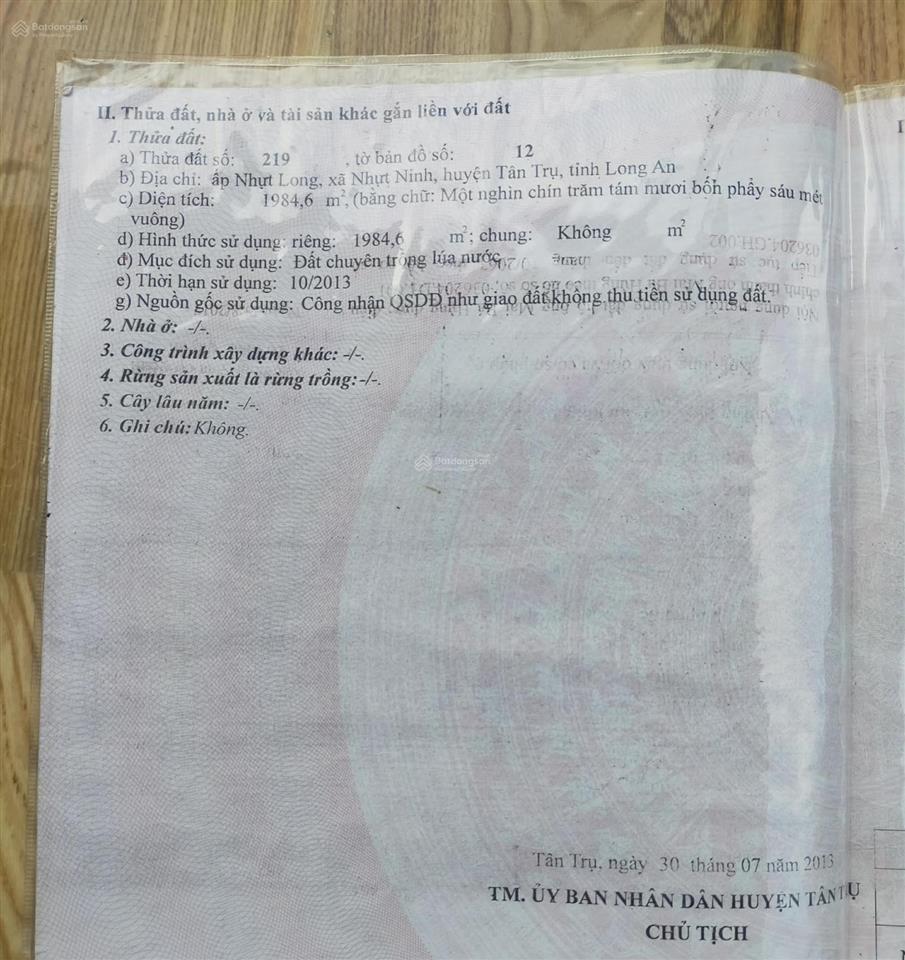 Batdongsan
II. Thửa đất, nhà ở và tài sản khác gắn liền với đất
1. Thửa đất:
a) Thửa đất số: 219 , tờ bản đồ số: 12
b) Địa chỉ: ấp Nhựt Long, xã Nhựt Ninh, huyện Tân Trụ, tỉnh Long An
c) Diện tích: 1984,6 m², (bằng chữ: Một nghìn chín trăm tám mươi bốn phẩy sáu mét
vuông)
d) Hình thức sử dụng: riêng: 1984,6 m²; chung: Không m²
đ) Mục đích sử dụng: Đất chuyên trồng lúa nước
e) Thời hạn sử dụng: 10/2013
g) Nguồn gốc sử dụng: Công nhận QSDĐ như giao đất không thu tiền sử dụng đất.
2. Nhà ở: -/-.
3. Công trình xây dựng khác: -/-.
4. Rừng sản xuất là rừng trồng: -/-.
5. Cây lâu năm: -/-.
6. Ghi chú: Không.
Batdongsan
Tân Trụ, ngày 30 tháng 07 năm 2013
TM. ỦY BAN NHÂN DÂN HUYỆN TÂN TRỤ
CHỦ TỊCH